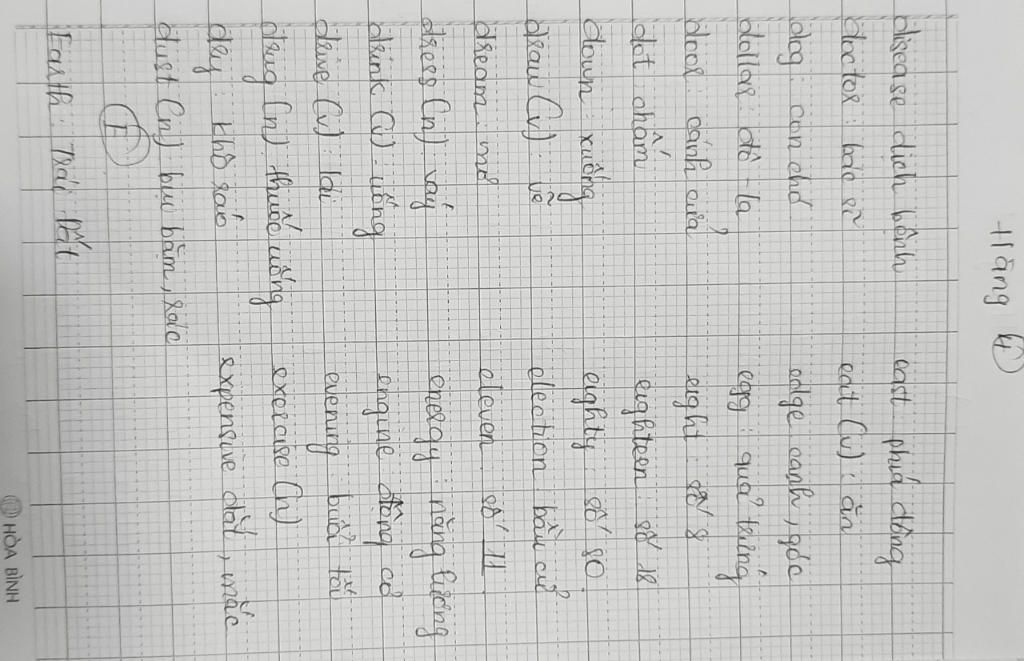 Hằng 4
disease dịch bệnh
doctor: bác sĩ
dog: con chó
dollar: đô-la
door: cánh cửa
dot chấm
down: xuống
draw (v): vẽ
dream: mơ
dress (n) váy
drink (v): uống
drive (v): lái
drug (n) thuốc uống
dry: khô ráo
dust (n) bụi bặm, rác
E
Earth: Trái Đất
east phía đông
eat (v): ăn
edge cạnh, góc
egg: quả trứng
eight: số 8
eighteen số 18
eighty số 80
election bầu cử
eleven số 11
energy: năng lượng
engine động cơ
evening buổi tối
exercise (n)
expensive đắt, mắc
HÒA BÌNH